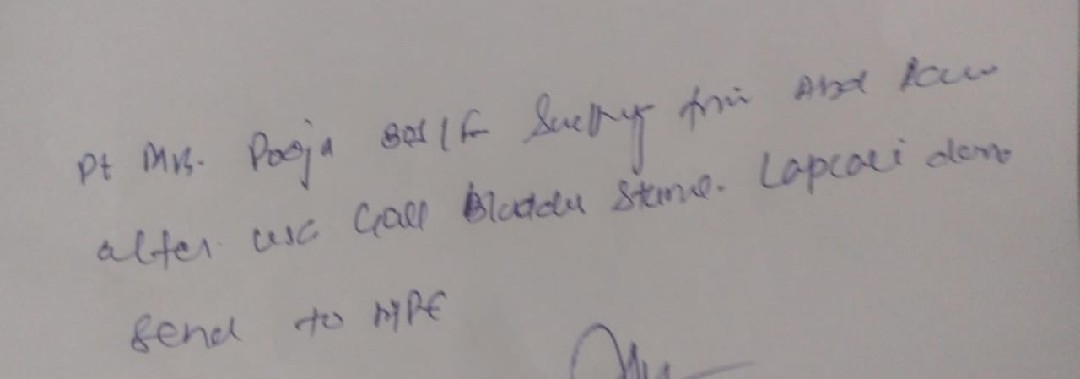 Pt Mrs. Pooja 30y/F Suffring from Abd Pain
after USG Gall Bladder Stone. Lapcoli done
Send to HPE